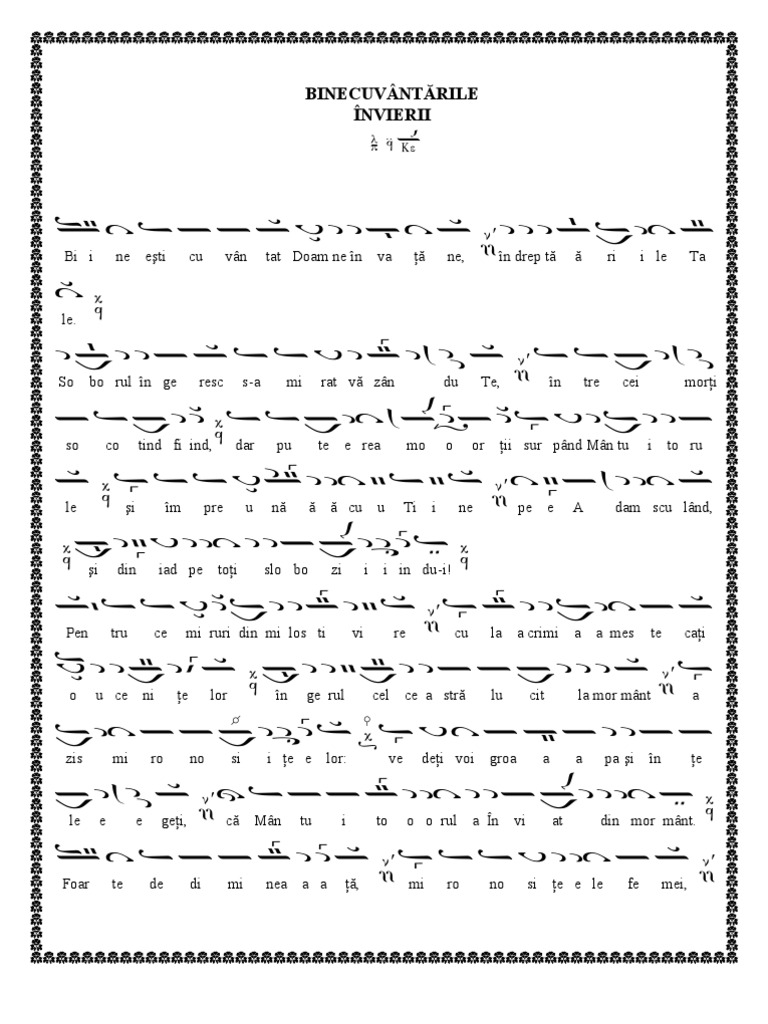 BINECUVÂNTĂRILE
ÎNVIERII
Ke
Bi i ne ești cu vân tat Doam ne în va ță ne, în drep tă ă ri i le Ta
le.
So bo rul în ge resc s-a mi rat vă zân du Te, în tre cei morți
so co tind fi ind, dar pu te e rea mo o or ții sur pând Mân tu i to ru
le și îm pre u nă ă ă cu u Ti i ne pe e A dam scu lând,
și din iad pe toți slo bo zi i i in du-i!
Pen tru ce mi ruri din mi los ti vi re cu la a crimi a a mes te cați
o u ce ni țe lor în ge rul cel ce a stră lu cit la mor mânt a
zis mi ro no si i țe e lor: ve deți voi groa a a pa și în țe
le e e geți, că Mân tu i to o o rul a În vi at din mor mânt.
Foar te de di mi nea a a ță, mi ro no si țe e le fe mei,